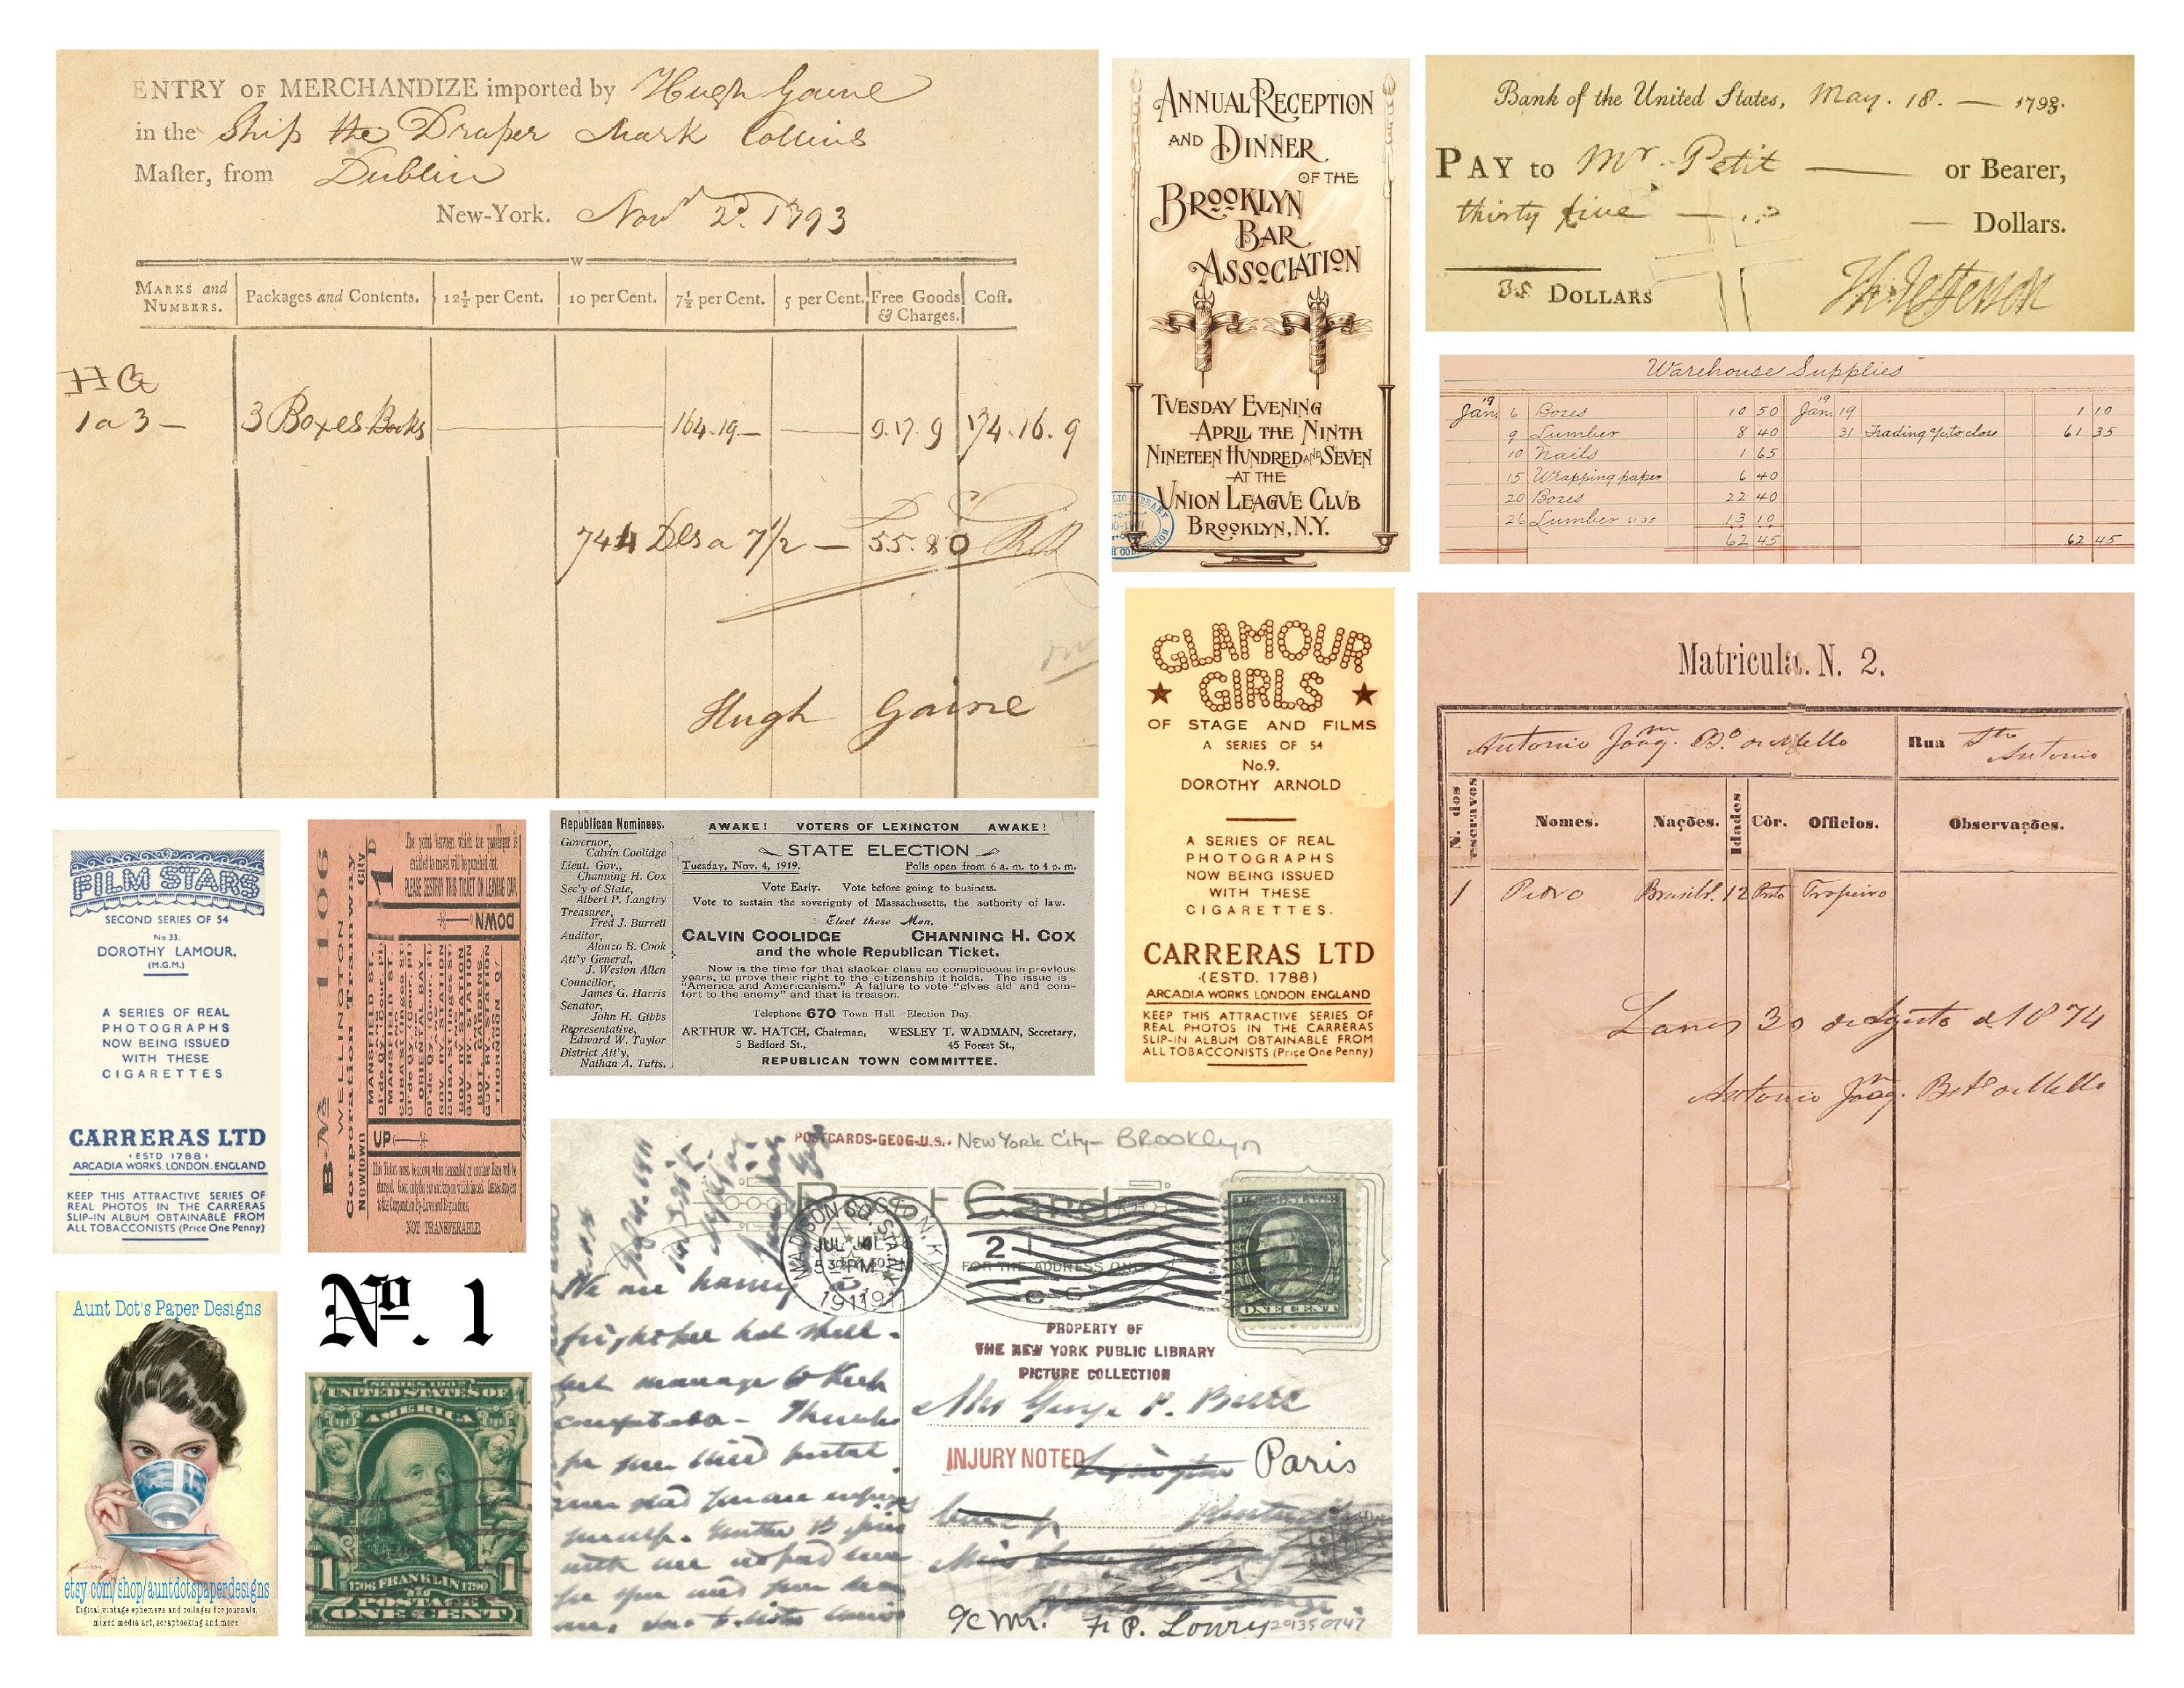 ENTRY OF MERCHANDIZE imported by Hugh Gaine
in the Ship the Draper Mark Collins
Maſter, from Dublin
New-York. Novr 2d. 1793
W
MARKS and NUMBERS.
Packages and Contents.
12½ per Cent.
10 per Cent.
7½ per Cent.
5 per Cent.
Free Goods & Charges.
Coſt.
HG
1 a 3 — 3 Boxes Books 164.19 — 9.17.9 174.16.9
744 Dls a 7½ — 55.80
Hugh Gaine
ANNUAL RECEPTION
AND DINNER
OF THE
BROOKLYN
BAR
ASSOCIATION
TUESDAY EVENING
APRIL THE NINTH
NINETEEN HUNDRED AND SEVEN
AT THE
UNION LEAGUE CLUB
BROOKLYN, N.Y.
Bank of the United States, May. 18. — 1793.
PAY to Mr. Petit — or Bearer,
thirty five — Dollars.
35 DOLLARS
Th. Jefferson
Warehouse Supplies
19 19
Jan. 6 Boxes 10 50 Jan. 19 1 10
9 Lumber 8 40 31 Trading a/c to close 61 35
10 Nails 1 65
15 Wrapping paper 6 40
20 Boxes 22 40
26 Lumber 13 10
62 45 62 45
GLAMOUR
GIRLS
OF STAGE AND FILMS
A SERIES OF 54
No.9.
DOROTHY ARNOLD
A SERIES OF REAL
PHOTOGRAPHS
NOW BEING ISSUED
WITH THESE
CIGARETTES.
CARRERAS LTD
(ESTD. 1788)
ARCADIA WORKS, LONDON, ENGLAND
KEEP THIS ATTRACTIVE SERIES OF
REAL PHOTOS IN THE CARRERAS
SLIP-IN ALBUM OBTAINABLE FROM
ALL TOBACCONISTS (Price One Penny)
Matricula. N. 2.
Antonio Joaqm. Bo. de Mello
Rua Sto Antonio
N. dos escravos
Nomes.
Nações.
Idades
Còr.
Officios.
Observações.
1 Pedro Brasilo. 12 Preto Tropeiro
30 de Agosto d 1874
Antonio Joaqm. Bto de Mello
FILM STARS
SECOND SERIES OF 54
No 33.
DOROTHY LAMOUR.
(M.G.M.)
A SERIES OF REAL
PHOTOGRAPHS
NOW BEING ISSUED
WITH THESE
CIGARETTES
CARRERAS LTD
ESTD 1788
ARCADIA WORKS, LONDON, ENGLAND
KEEP THIS ATTRACTIVE SERIES OF
REAL PHOTOS IN THE CARRERAS
SLIP-IN ALBUM OBTAINABLE FROM
ALL TOBACCONISTS (Price One Penny)
1106
WELLINGTON City
Corporation Tramway.
Newtown
1D
The point between which the passenger is
entitled to travel will be punched out.
PLEASE DESTROY THIS TICKET ON LEAVING CAR
DOWN
MANSFIELD ST.
ORIENTAL BAY
GOV. RY STATION
BOT. GARDENS
THORNDON QY
UP
NOT TRANSFERABLE
Republican Nominees.
Governor,
Calvin Coolidge
Lieut. Gov.,
Channing H. Cox
Sec'y of State,
Albert P. Langtry
Treasurer,
Fred J. Burrell
Auditor,
Alonzo B. Cook
Att'y General,
J. Weston Allen
Councillor,
James G. Harris
Senator,
John H. Gibbs
Representative,
Edward W. Taylor
District Att'y,
Nathan A. Tufts.
AWAKE! VOTERS OF LEXINGTON AWAKE!
STATE ELECTION
Tuesday, Nov. 4, 1919. Polls open from 6 a. m. to 4 p. m.
Vote Early. Vote before going to business.
Vote to sustain the soverignty of Massachusetts, the authority of law.
Elect these Men,
CALVIN COOLIDGE CHANNING H. COX
and the whole Republican Ticket.
Now is the time for that slacker class so conspicuous in previous
years, to prove their right to the citizenship it holds. The issue is
"America and Americanism." A failure to vote "gives aid and com-
fort to the enemy" and that is treason.
Telephone 670 Town Hall—Election Day.
ARTHUR W. HATCH, Chairman, WESLEY T. WADMAN, Secretary,
5 Bedford St., 45 Forest St.,
REPUBLICAN TOWN COMMITTEE.
POSTCARDS-GEOG-U.S.- New York City- BROOKLYN
Post Card
MADISON SQ. STA. N.Y.
JUL
PM
1911
FOR THE ADDRESS ONLY
ONE CENT
We are having a
frightful hot spell -
but manage to keep
comfortable - Thanks
PROPERTY OF
THE NEW YORK PUBLIC LIBRARY
PICTURE COLLECTION
Mrs George
INJURY NOTED
Paris
Miss
c/c Mr. F. P. Lowry
Aunt Dot's Paper Designs
etsy.com/shop/auntdotspaperdesigns
Digital vintage ephemera and collages for journals,
mixed media art, scrapbooking and more.
No. 1
SERIES 1902
UNITED STATES OF
AMERICA
1 1
1706 FRANKLIN 1790
POSTAGE
ONE CENT